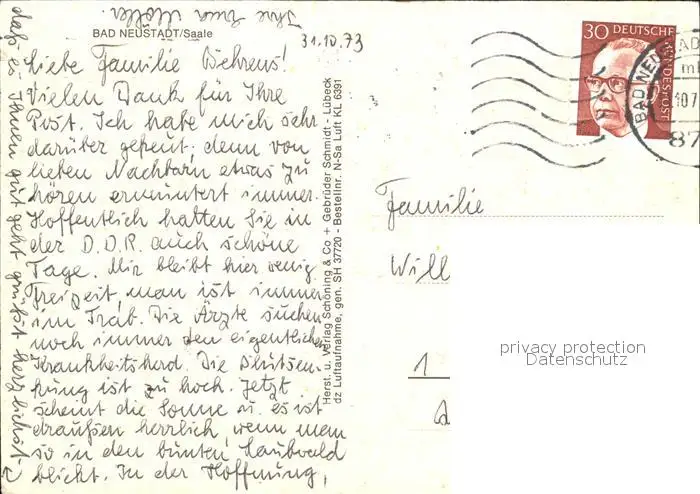 BAD NEUSTADT/Saale
31.10.73
Liebe Familie Behrens!
Vielen Dank für Ihre
Post. Ich habe mich sehr
darüber gefreut, denn von
lieben Nachbarn etwas zu
hören ermuntert immer.
Hoffentlich hatten Sie in
der D.D.R. auch schöne
Tage. Mir bleibt hier wenig
Freizeit, man ist immer
im Trab. Die Ärzte suchen
noch immer den eigentlichen
Krankheitsherd. Die Blutsen-
kung ist zu hoch. Jetzt
scheint die Sonne u. es ist
draußen herrlich, wenn man
so in den bunten Laubwald
blickt. In der Hoffnung,
daß es Ihnen gut geht grüßt herzlichst
Ihre Möller.
Herst. u. Verlag Schöning & Co + Gebrüder Schmidt - Lübeck
dz Luftaufnahme, gen. SH 37720 - Bestellnr. N-Sa Luft KL 6391
30 DEUTSCHE BUNDESPOST
BAD NEU
10.7
87
Familie
Will
1
privacy protection
Datenschutz